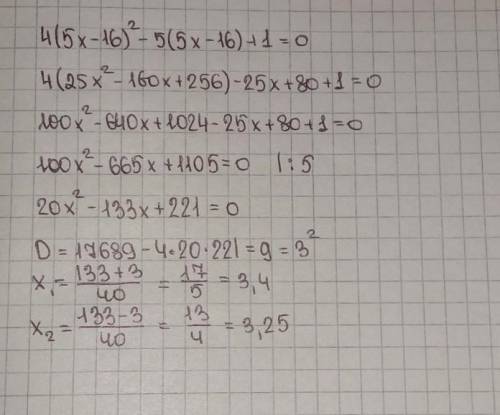 4(5x-16)²-5(5x-16)+1=0
4(25x²-160x+256)-25x+80+1=0
100x²-640x+1024-25x+80+1=0
100x²-665x+1105=0 |:5
20x²-133x+221=0
D=17689-4·20·221=9=3²
x₁=(133+3)/40=17/5=3,4
x₂=(133-3)/40=13/4=3,25